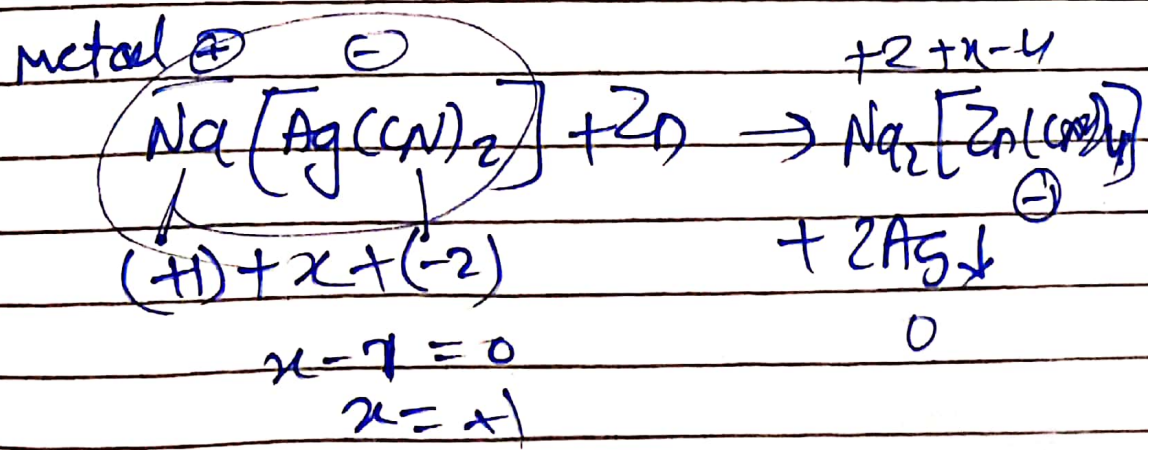 Metal ⊕ ⊖ +2+x-4
Na[Ag(CN)2] + Zn → Na2[Zn(CN)4]
⊖
(+1)+x+(-2) + 2Ag↓
x-1=0 0
x=+1